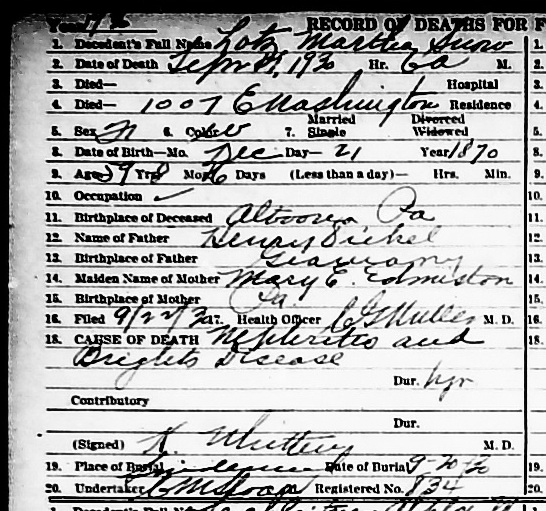 RECORD OF DEATHS FOR F
1. Decedent's Full Name Lotz Martha Snow
2. Date of Death Sept 1930 Hr. 6 a M.
3. Died— Hospital
4. Died— 1007 E Washington Residence
5. Sex F 6. Color W 7. Married Single Divorced Widowed
8. Date of Birth—Mo. Dec Day— 21 Year 1870
9. Age 59 Yrs 8 Mo. Days (Less than a day)— Hrs. Min.
10. Occupation ✓
11. Birthplace of Deceased Altoona Pa
12. Name of Father Henry Sickel
13. Birthplace of Father Germany
14. Maiden Name of Mother Mary E. Edmiston
15. Birthplace of Mother Pa
16. Filed 9/22/30 17. Health Officer M. D.
18. CAUSE OF DEATH Nephritis and
Brights Disease
Dur.
Contributory
Dur.
(Signed) M. D.
19. Place of Burial Date of Burial 9-20/30
20. Undertaker Registered No. 834
1. Decedent's Full N